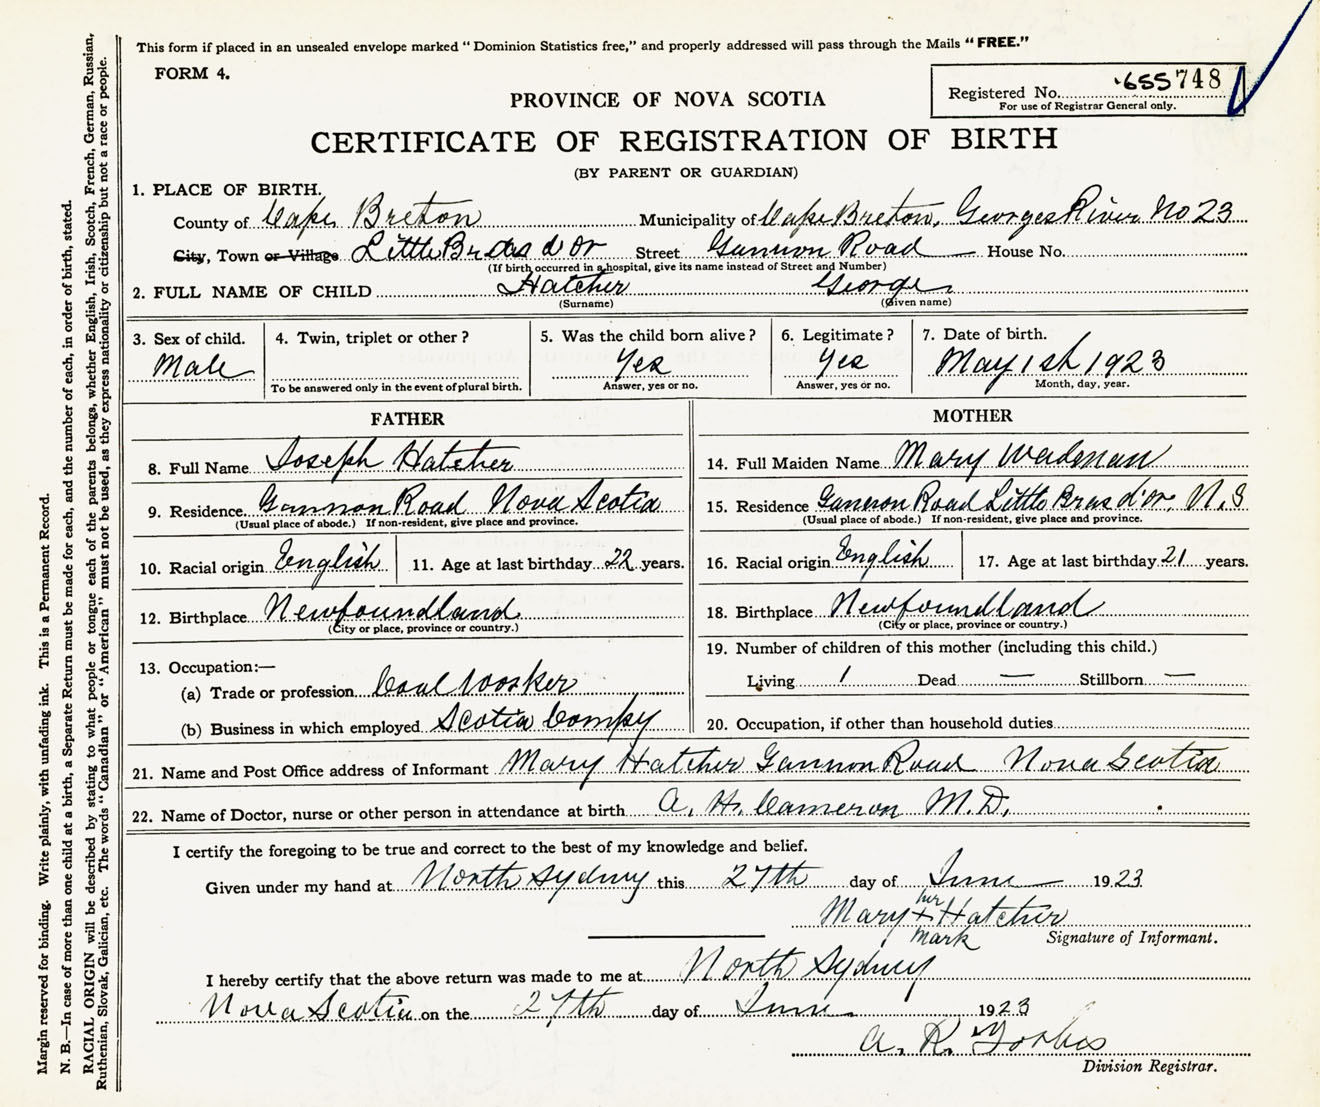 This form if placed in an unsealed envelope marked "Dominion Statistics free," and properly addressed will pass through the Mails "FREE."
FORM 4.
Registered No. 655748
For use of Registrar General only.
PROVINCE OF NOVA SCOTIA
CERTIFICATE OF REGISTRATION OF BIRTH
(BY PARENT OR GUARDIAN)
1. PLACE OF BIRTH.
County of Cape Breton Municipality of Cape Breton, Georges River No 23
City, Town or Village Little Bras d'Or Street Gannon Road House No.
(If birth occurred in a hospital, give its name instead of Street and Number)
2. FULL NAME OF CHILD Hatcher George
(Surname) (Given name)
3. Sex of child. Male
4. Twin, triplet or other?
To be answered only in the event of plural birth.
5. Was the child born alive? Yes
Answer, yes or no.
6. Legitimate? Yes
Answer, yes or no.
7. Date of birth. May 1st 1923
Month, day, year.
FATHER
8. Full Name Joseph Hatcher
9. Residence Gannon Road Nova Scotia
(Usual place of abode.) If non-resident, give place and province.
10. Racial origin English 11. Age at last birthday 22 years.
12. Birthplace Newfoundland
(City or place, province or country.)
13. Occupation:—
(a) Trade or profession Coal Worker
(b) Business in which employed Scotia Compy
MOTHER
14. Full Maiden Name Mary
15. Residence Gannon Road Little Bras d'or, N.S
(Usual place of abode.) If non-resident, give place and province.
16. Racial origin English 17. Age at last birthday 21 years.
18. Birthplace Newfoundland
(City or place, province or country.)
19. Number of children of this mother (including this child.)
Living 1 Dead — Stillborn —
20. Occupation, if other than household duties
21. Name and Post Office address of Informant Mary Hatcher Gannon Road Nova Scotia
22. Name of Doctor, nurse or other person in attendance at birth A. H. Cameron M.D.
I certify the foregoing to be true and correct to the best of my knowledge and belief.
Given under my hand at North Sydney this 27th day of June 1923
her
Mary + Hatcher
mark
Signature of Informant.
I hereby certify that the above return was made to me at North Sydney
Nova Scotia on the 27th day of June 1923
A. R. Forbes
Division Registrar.
Margin reserved for binding. Write plainly, with unfading ink. This is a Permanent Record.
N. B.—In case of more than one child at a birth, a Separate Return must be made for each, and the number of each, in order of birth, stated.
RACIAL ORIGIN will be described by stating to what people or tongue each of the parents belongs, whether English, Irish, Scotch, French, German, Russian,
Ruthenian, Slovak, Galician, etc. The words "Canadian" or "American" must not be used, as they express nationality or citizenship but not a race or people.